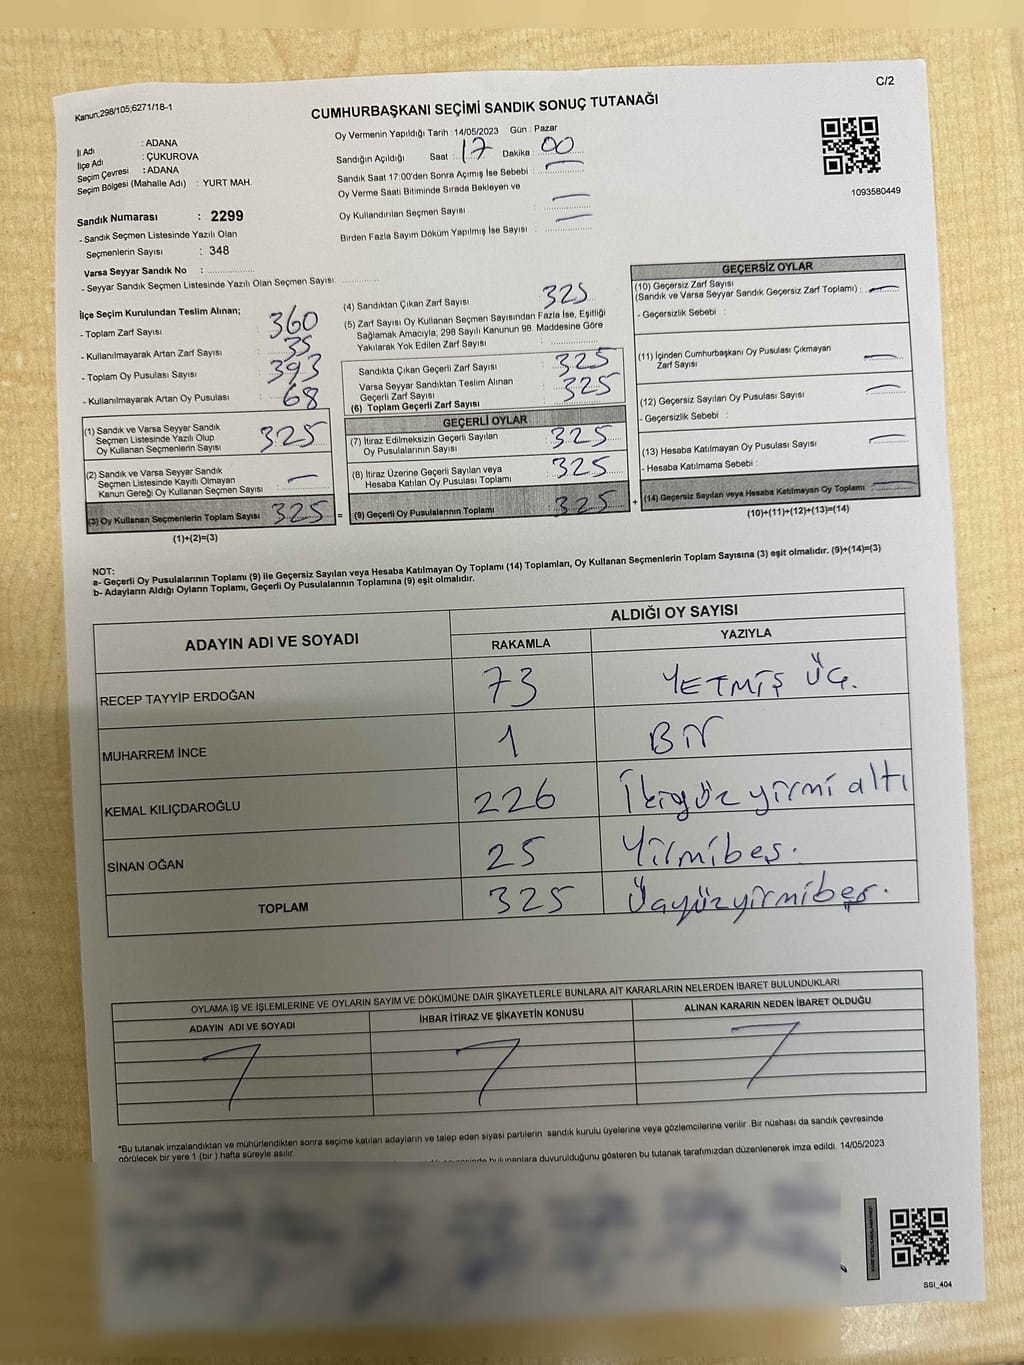 C/2
Kanun;298/105;6271/18-1
CUMHURBAŞKANI SEÇİMİ SANDIK SONUÇ TUTANAĞI
Oy Vermenin Yapıldığı Tarih : 14/05/2023 Gün : Pazar
İl Adı : ADANA
İlçe Adı : ÇUKUROVA
Seçim Çevresi : ADANA
Seçim Bölgesi (Mahalle Adı) : YURT MAH.
Sandığın Açıldığı Saat : 17 Dakika : 00
Sandık Saat 17:00'den Sonra Açımış İse Sebebi :
Oy Verme Saati Bitiminde Sırada Bekleyen ve
Oy Kullandırılan Seçmen Sayısı :
Birden Fazla Sayım Döküm Yapılmış İse Sayısı :
1093580449
Sandık Numarası : 2299
- Sandık Seçmen Listesinde Yazılı Olan
Seçmenlerin Sayısı : 348
Varsa Seyyar Sandık No :
- Seyyar Sandık Seçmen Listesinde Yazılı Olan Seçmen Sayısı:
İlçe Seçim Kurulundan Teslim Alınan;
- Toplam Zarf Sayısı : 360
- Kullanılmayarak Artan Zarf Sayısı : 35
- Toplam Oy Pusulası Sayısı : 393
- Kullanılmayarak Artan Oy Pusulası : 68
(1) Sandık ve Varsa Seyyar Sandık
Seçmen Listesinde Yazılı Olup
Oy Kullanan Seçmenlerin Sayısı : 325
(2) Sandık ve Varsa Seyyar Sandık
Seçmen Listesinde Kayıtlı Olmayan
Kanun Gereği Oy Kullanan Seçmen Sayısı : –
(3) Oy Kullanan Seçmenlerin Toplam Sayısı : 325 =
(1)+(2)=(3)
(4) Sandıktan Çıkan Zarf Sayısı : 325
(5) Zarf Sayısı Oy Kullanan Seçmen Sayısından Fazla İse, Eşitliği
Sağlamak Amacıyla, 298 Sayılı Kanunun 98. Maddesine Göre
Yakılarak Yok Edilen Zarf Sayısı :
Sandıkta Çıkan Geçerli Zarf Sayısı : 325
Varsa Seyyar Sandıktan Teslim Alınan
Geçerli Zarf Sayısı : 325
(6) Toplam Geçerli Zarf Sayısı
GEÇERLİ OYLAR
(7) İtiraz Edilmeksizin Geçerli Sayılan
Oy Pusulasının Sayısı : 325
(8) İtiraz Üzerine Geçerli Sayılan veya
Hesaba Katılan Oy Pusulası Toplamı : 325
(9) Geçerli Oy Pusulalarının Toplamı : 325 +
GEÇERSİZ OYLAR
(10) Geçersiz Zarf Sayısı
(Sandık ve Varsa Seyyar Sandık Geçersiz Zarf Toplamı) : –
- Geçersizlik Sebebi :
(11) İçinden Cumhurbaşkanı Oy Pusulası Çıkmayan
Zarf Sayısı : –
(12) Geçersiz Sayılan Oy Pusulası Sayısı : –
- Geçersizlik Sebebi :
(13) Hesaba Katılmayan Oy Pusulası Sayısı : –
- Hesaba Katılmama Sebebi :
(14) Geçersiz Sayılan veya Hesaba Katılmayan Oy Toplamı : –
(10)+(11)+(12)+(13)=(14)
NOT:
a- Geçerli Oy Pusulalarının Toplamı (9) ile Geçersiz Sayılan veya Hesaba Katılmayan Oy Toplamı (14) Toplamları, Oy Kullanan Seçmenlerin Toplam Sayısına (3) eşit olmalıdır. (9)+(14)=(3)
b- Adayların Aldığı Oyların Toplamı, Geçerli Oy Pusulalarının Toplamına (9) eşit olmalıdır.
ADAYIN ADI VE SOYADI ALDIĞI OY SAYISI
RAKAMLA YAZIYLA
RECEP TAYYİP ERDOĞAN 73 YETMİŞ ÜÇ.
MUHARREM İNCE 1 BİR
KEMAL KILIÇDAROĞLU 226 İkiyüz yirmi altı
SİNAN OĞAN 25 Yirmibeş.
TOPLAM 325 Üçyüzyirmibeş.
OYLAMA İŞ VE İŞLEMLERİNE VE OYLARIN SAYIM VE DÖKÜMÜNE DAİR ŞİKAYETLERLE BUNLARA AİT KARARLARIN NELERDEN İBARET BULUNDUKLARI
ADAYIN ADI VE SOYADI İHBAR İTİRAZ VE ŞİKAYETİN KONUSU ALINAN KARARIN NEDEN İBARET OLDUĞU
*Bu tutanak imzalandıktan ve mühürlendikten sonra seçime katılan adayların ve talep eden siyasi partilerin sandık kurulu üyelerine veya gözlemcilerine verilir. Bir nüshası da sandık çevresinde
görülecek bir yere 1 (bir ) hafta süreyle asılır.
bulunanlara duyurulduğunu gösteren bu tutanak tarafımızdan düzenlenerek imza edildi. 14/05/2023
SSI_404